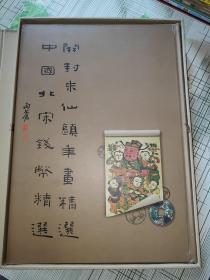 開封朱仙鎮年畫精選
中國北宋錢幣精選